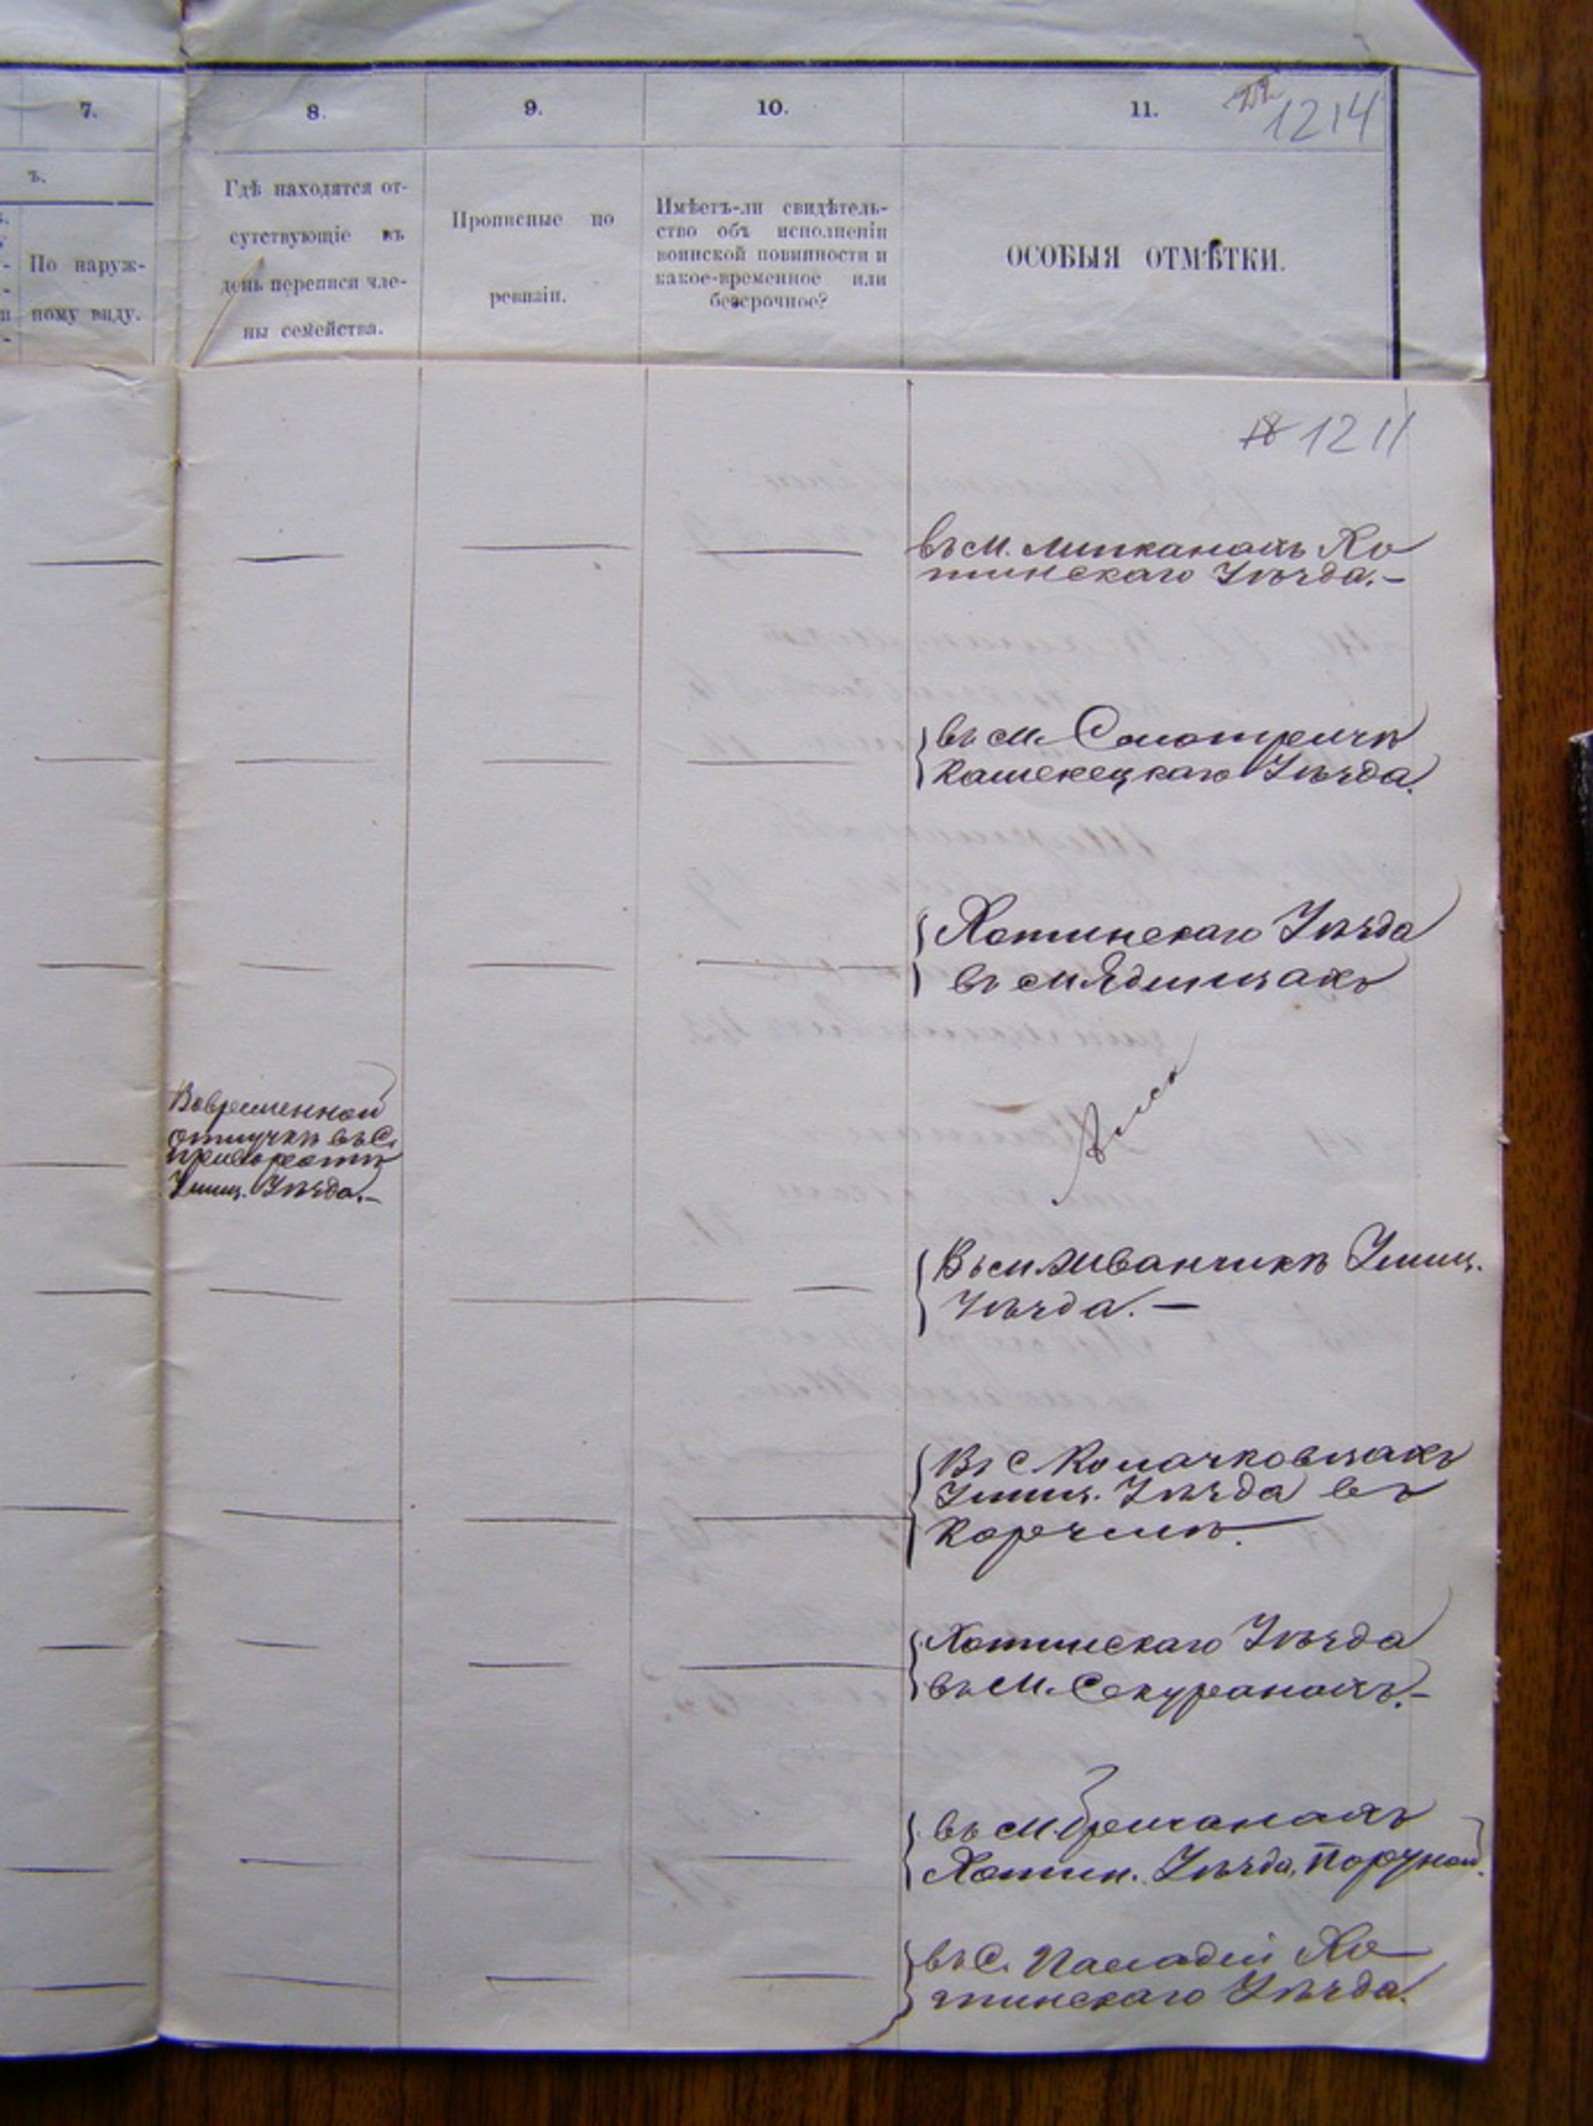 7.
8.
9.
10.
11.
1214
ъ.
По наруж-
ному виду.
Гдѣ находятся от-
сутствующіе въ
день переписи чле-
ны семейства.
Прописные по
ревизіи.
Имѣетъ-ли свидѣтель-
ство объ исполненіи
воинской повинности и
какое-временное или
безсрочное?
ОСОБЫЯ ОТМѢТКИ.
18 1211
въ м. Липканахъ Хо
тинскаго Уѣзда.-
въ м. Смотричѣ
Каменецкаго Уѣзда.
Хотинскаго Уѣзда
въ м Единцахъ
Вовременной
отлучкѣ въ С.
Ушиц. Уѣзда.-
Въ м Жванчикѣ Ушиц.
Уѣзда. —
Въ С Колачковцахъ
Ушиц. Уѣзда въ
Корчмѣ.
Хотинскаго Уѣзда
въ М. Секуранахъ.-
въ м. Бричанахъ
Хотин. Уѣзда,
въ С. Паладіи Хо
тинскаго Уѣзда.